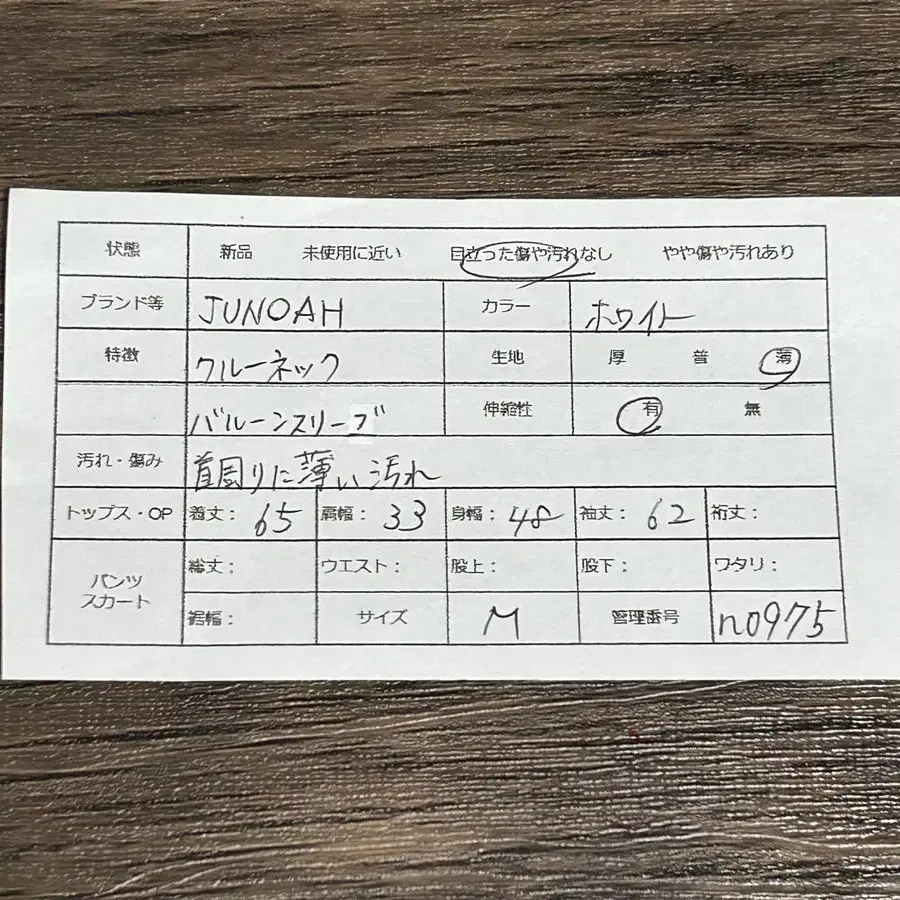 状態 新品 未使用に近い 目立った傷や汚れなし やや傷や汚れあり
ブランド等 JUNOAH カラー ホワイト
特徴 クルーネック 生地 厚 普 薄
バルーンスリーブ 伸縮性 有 無
汚れ・傷み 首周りに薄い汚れ
トップス・OP 着丈： 65 肩幅： 33 身幅： 48 袖丈： 62 裄丈：
パンツ スカート 総丈： ウエスト： 股上： 股下： ワタリ：
裾幅： サイズ M 管理番号 n0975